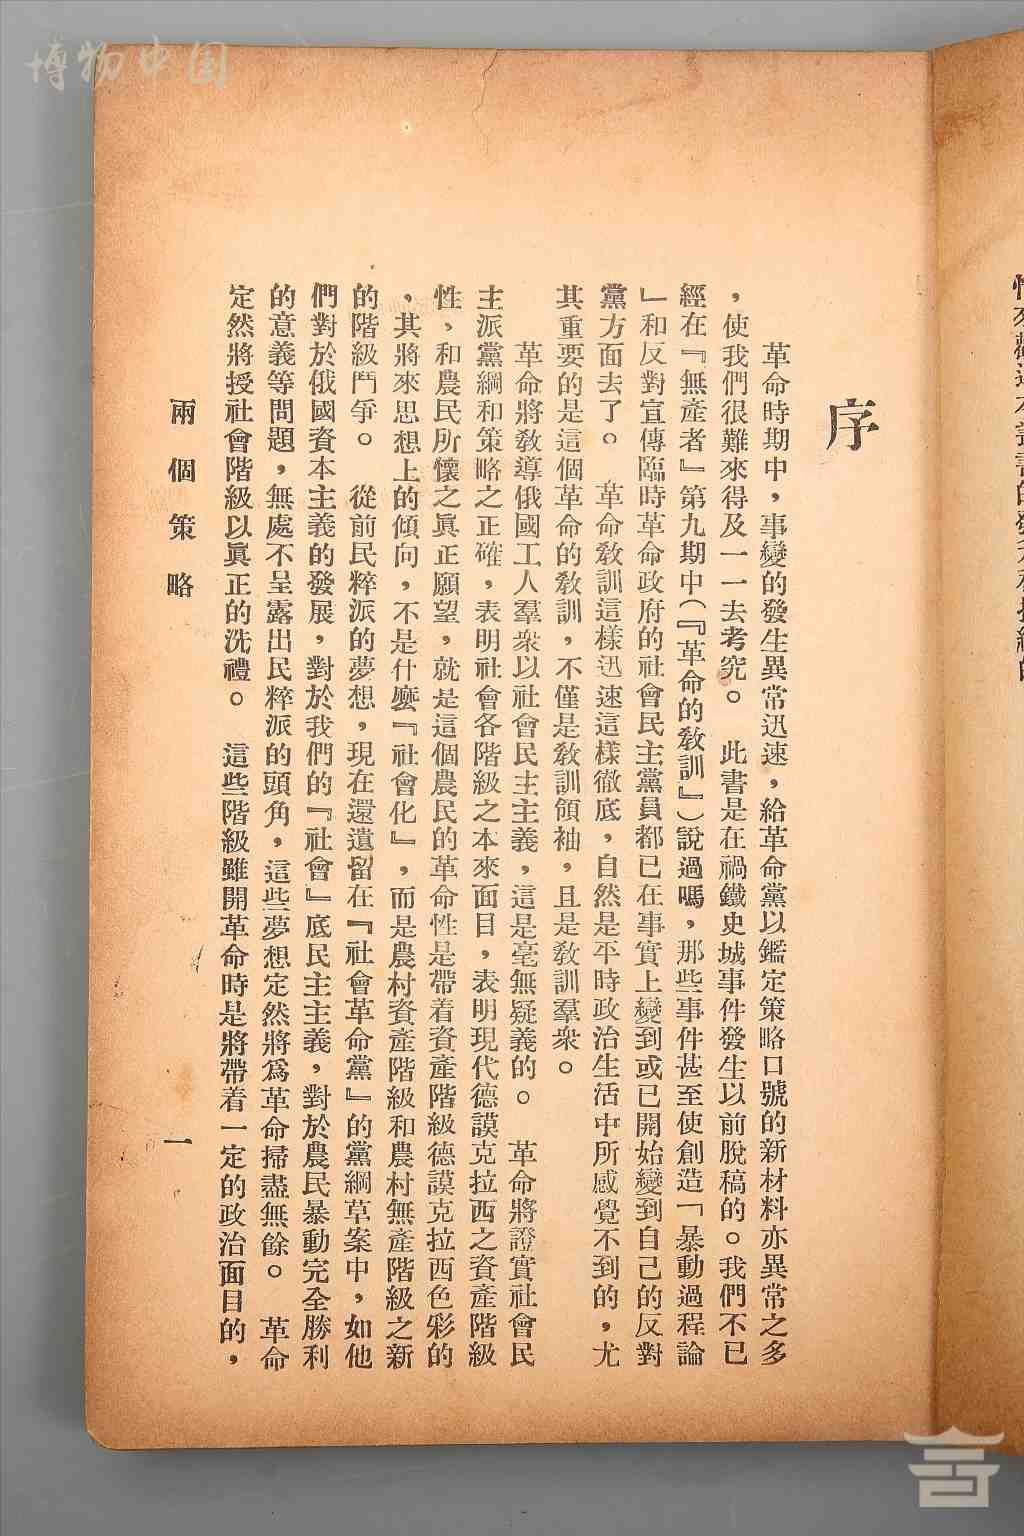 博物中国
序
革命時期中，事變的發生異常迅速，給革命黨以鑑定策略口號的新材料亦異常之多
，使我們很難來得及一一去考究。　此書是在禍鐵史城事件發生以前脫稿的。我們不已
經在『無產者』第九期中（『革命的教訓』）說過嗎，那些事件甚至使創造「暴動過程論
」和反對宣傳臨時革命政府的社會民主黨員都已在事實上變到或已開始變到自己的反對
黨方面去了。　革命教訓這樣迅速這樣徹底，自然是平時政治生活中所感覺不到的，尤
其重要的是這個革命的教訓，不僅是教訓領袖，且是教訓羣衆。
革命將教導俄國工人羣衆以社會民主主義，這是毫無疑義的。　革命將證實社會民
主派黨綱和策略之正確，表明社會各階級之本來面目，表明現代德謨克拉西之資產階級
性、和農民所懷之眞正願望，就是這個農民的革命性是帶着資產階級德謨克拉西色彩的
，其將來思想上的傾向，不是什麼『社會化』，而是農村資產階級和農村無產階級之新
的階級鬥爭。　從前民粹派的夢想，現在還遺留在『社會革命黨』的黨綱草案中，如他
們對於俄國資本主義的發展，對於我們的『社會』底民主主義，對於農民暴動完全勝利
的意義等問題，無處不呈露出民粹派的頭角，這些夢想定然將爲革命掃盡無餘。　革命
定然將授社會階級以眞正的洗禮。　這些階級雖開革命時是將帶着一定的政治面目的，
兩個策略
一